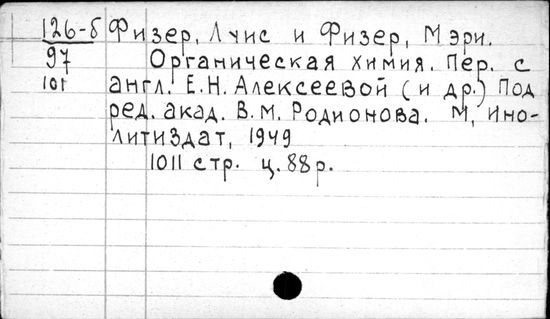 126-б Физер, Луис и Физер, Мэри.
97 Органическая химия. Пер. с
101 англ. Е.Н. Алексеевой (и др.) Под
ред. акад. В.М. Родионова. М, Ино-
литиздат, 1949
1011 стр. ц. 88 р.